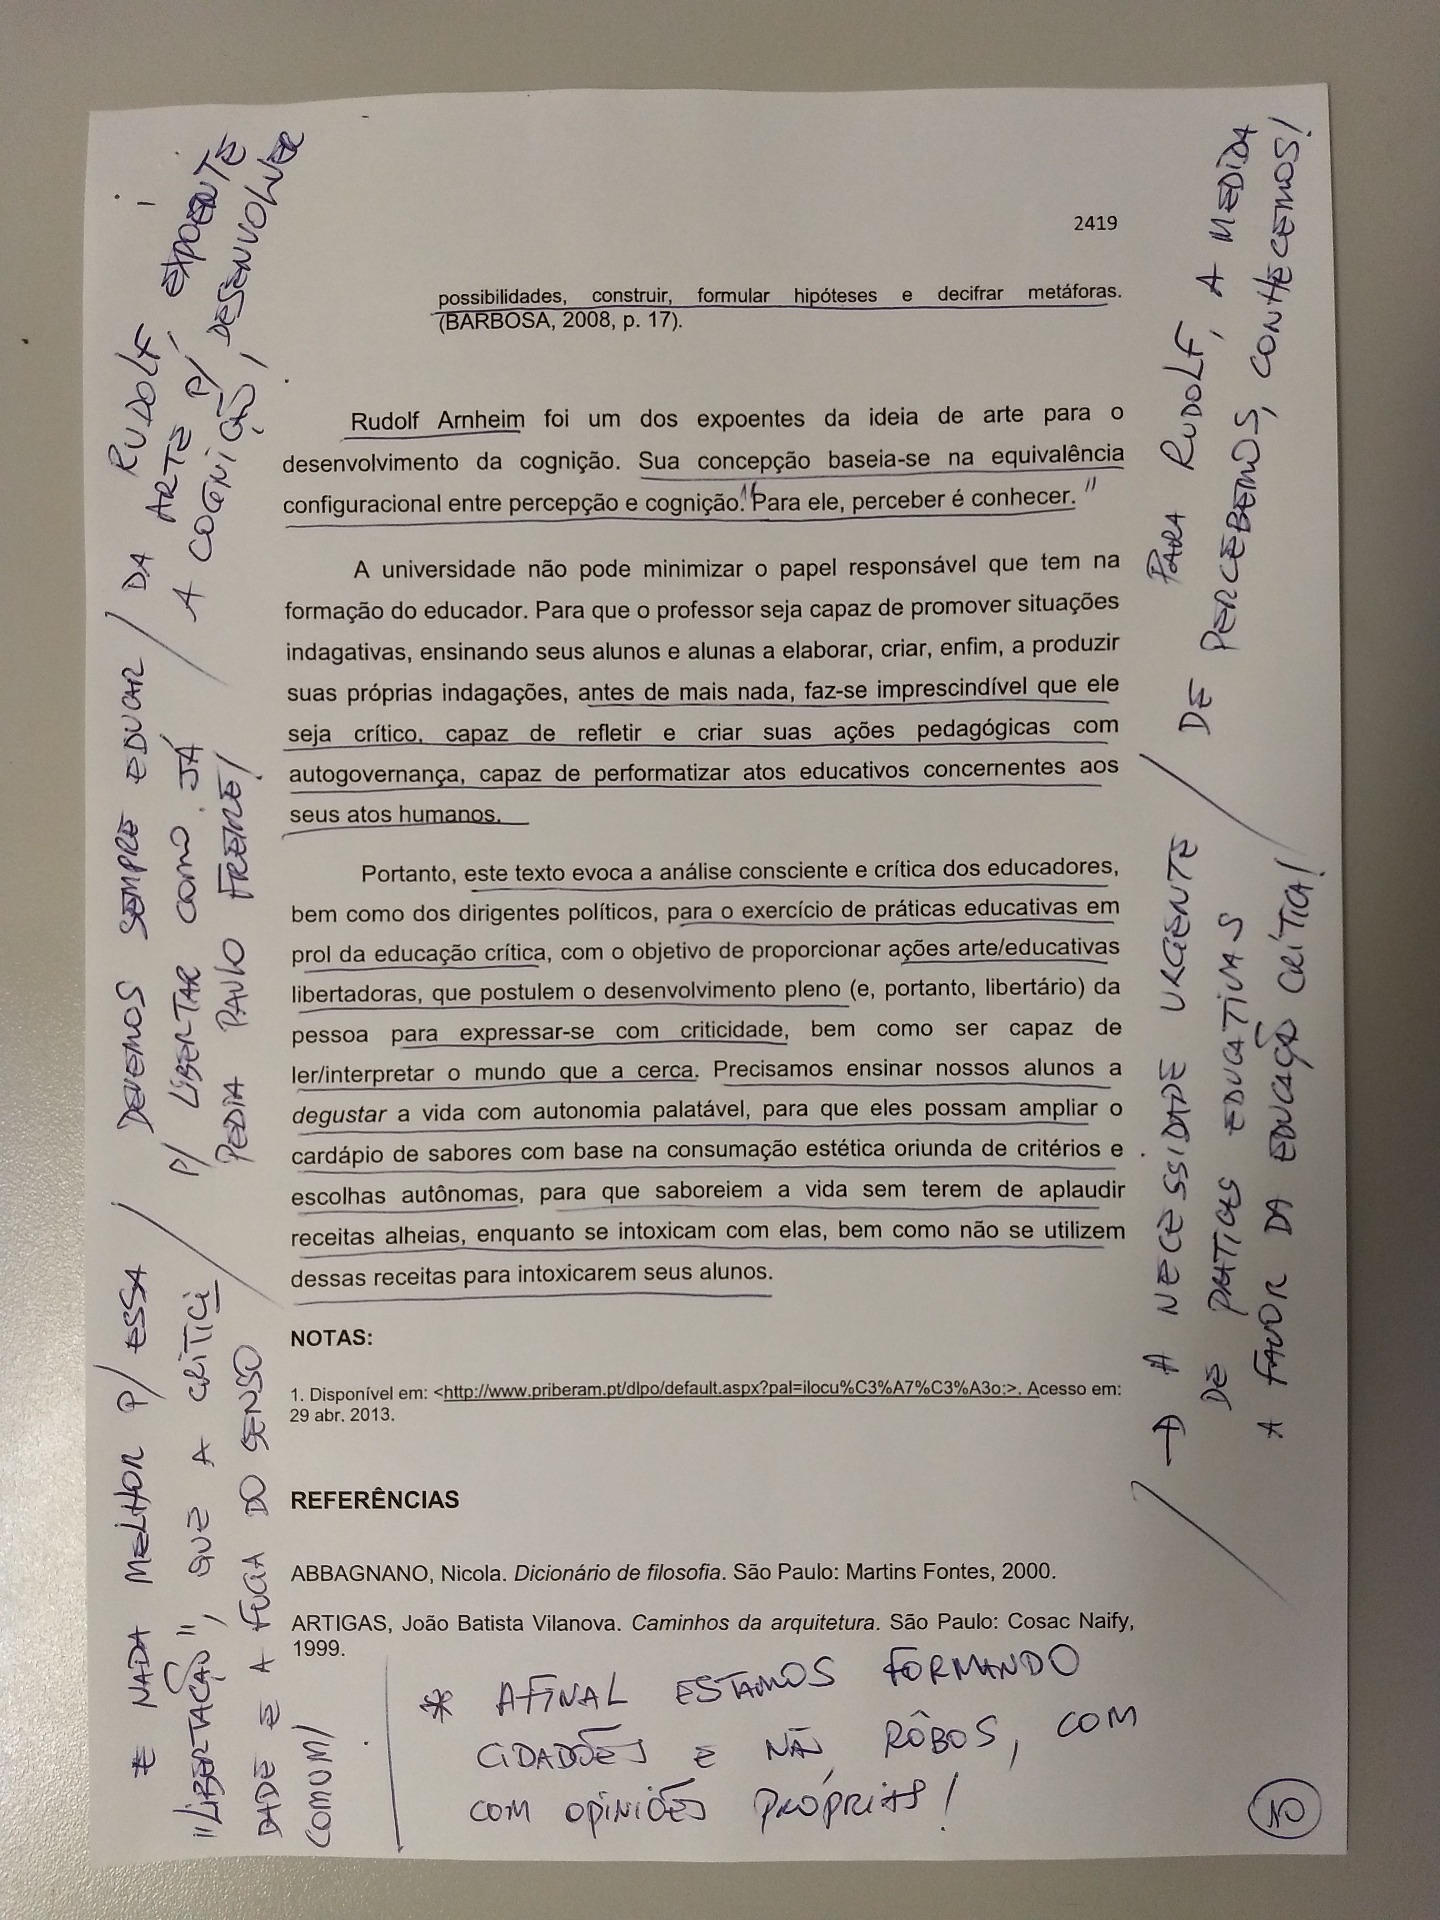 2419
possibilidades, construir, formular hipóteses e decifrar metáforas.
(BARBOSA, 2008, p. 17).
Rudolf Arnheim foi um dos expoentes da ideia de arte para o
desenvolvimento da cognição. Sua concepção baseia-se na equivalência
configuracional entre percepção e cognição. "Para ele, perceber é conhecer."
A universidade não pode minimizar o papel responsável que tem na
formação do educador. Para que o professor seja capaz de promover situações
indagativas, ensinando seus alunos e alunas a elaborar, criar, enfim, a produzir
suas próprias indagações, antes de mais nada, faz-se imprescindível que ele
seja crítico, capaz de refletir e criar suas ações pedagógicas com
autogovernança, capaz de performatizar atos educativos concernentes aos
seus atos humanos.
Portanto, este texto evoca a análise consciente e crítica dos educadores,
bem como dos dirigentes políticos, para o exercício de práticas educativas em
prol da educação crítica, com o objetivo de proporcionar ações arte/educativas
libertadoras, que postulem o desenvolvimento pleno (e, portanto, libertário) da
pessoa para expressar-se com criticidade, bem como ser capaz de
ler/interpretar o mundo que a cerca. Precisamos ensinar nossos alunos a
degustar a vida com autonomia palatável, para que eles possam ampliar o
cardápio de sabores com base na consumação estética oriunda de critérios e
escolhas autônomas, para que saboreiem a vida sem terem de aplaudir
receitas alheias, enquanto se intoxicam com elas, bem como não se utilizem
dessas receitas para intoxicarem seus alunos.
NOTAS:
1. Disponível em: <http://www.priberam.pt/dlpo/default.aspx?pal=ilocu%C3%A7%C3%A3o:>. Acesso em:
29 abr. 2013.
REFERÊNCIAS
ABBAGNANO, Nicola. Dicionário de filosofia. São Paulo: Martins Fontes, 2000.
ARTIGAS, João Batista Vilanova. Caminhos da arquitetura. São Paulo: Cosac Naify,
1999.
* AFINAL ESTAMOS FORMANDO
CIDADÕES E NÃO RÔBOS, COM
COM OPINIÕES PRÓPRIAS!
10
E NADA MELHOR P/ ESSA
"LIBERTAÇÃO", QUE A CRITICI
DADE E A FUGA DO SENSO
COMUM/
DEVEMOS SEMPRE EDUCAR /
P/ LIBERTAR COMO JÁ
PEDIA PAULO FREIRE/
DA RUDOLF
ARTE, EXPOENTE
A COGNIÇÃO, P/ DESENVOLVER
→ A NECESSIDADE URGENTE
DE PRATICAS EDUCATIVAS
A FAVOR DA EDUCAÇÃO CRÍTICA!
PARA RUDOLF, A MEDIDA
DE PERCEBEMOS, CONHECEMOS!